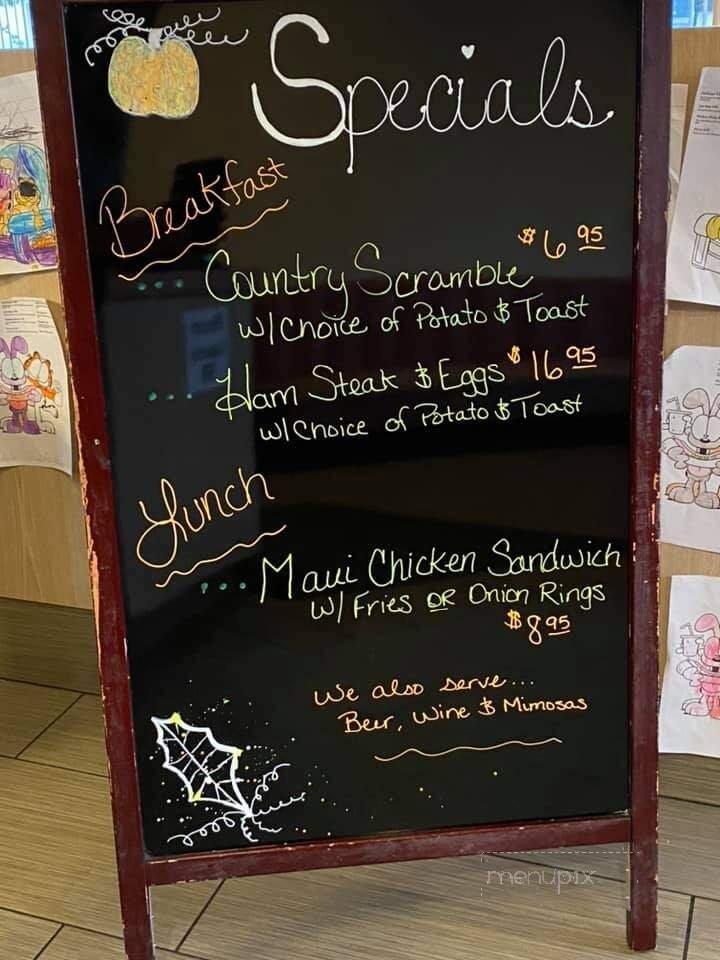 Specials
Breakfast
$6 95
... Country Scramble
w/ Choice of Potato & Toast
... Ham Steak & Eggs $16 95
w/ Choice of Potato & Toast
Lunch
... Maui Chicken Sandwich
w/ Fries OR Onion Rings
$8 95
We also serve...
Beer, Wine & Mimosas
menupix